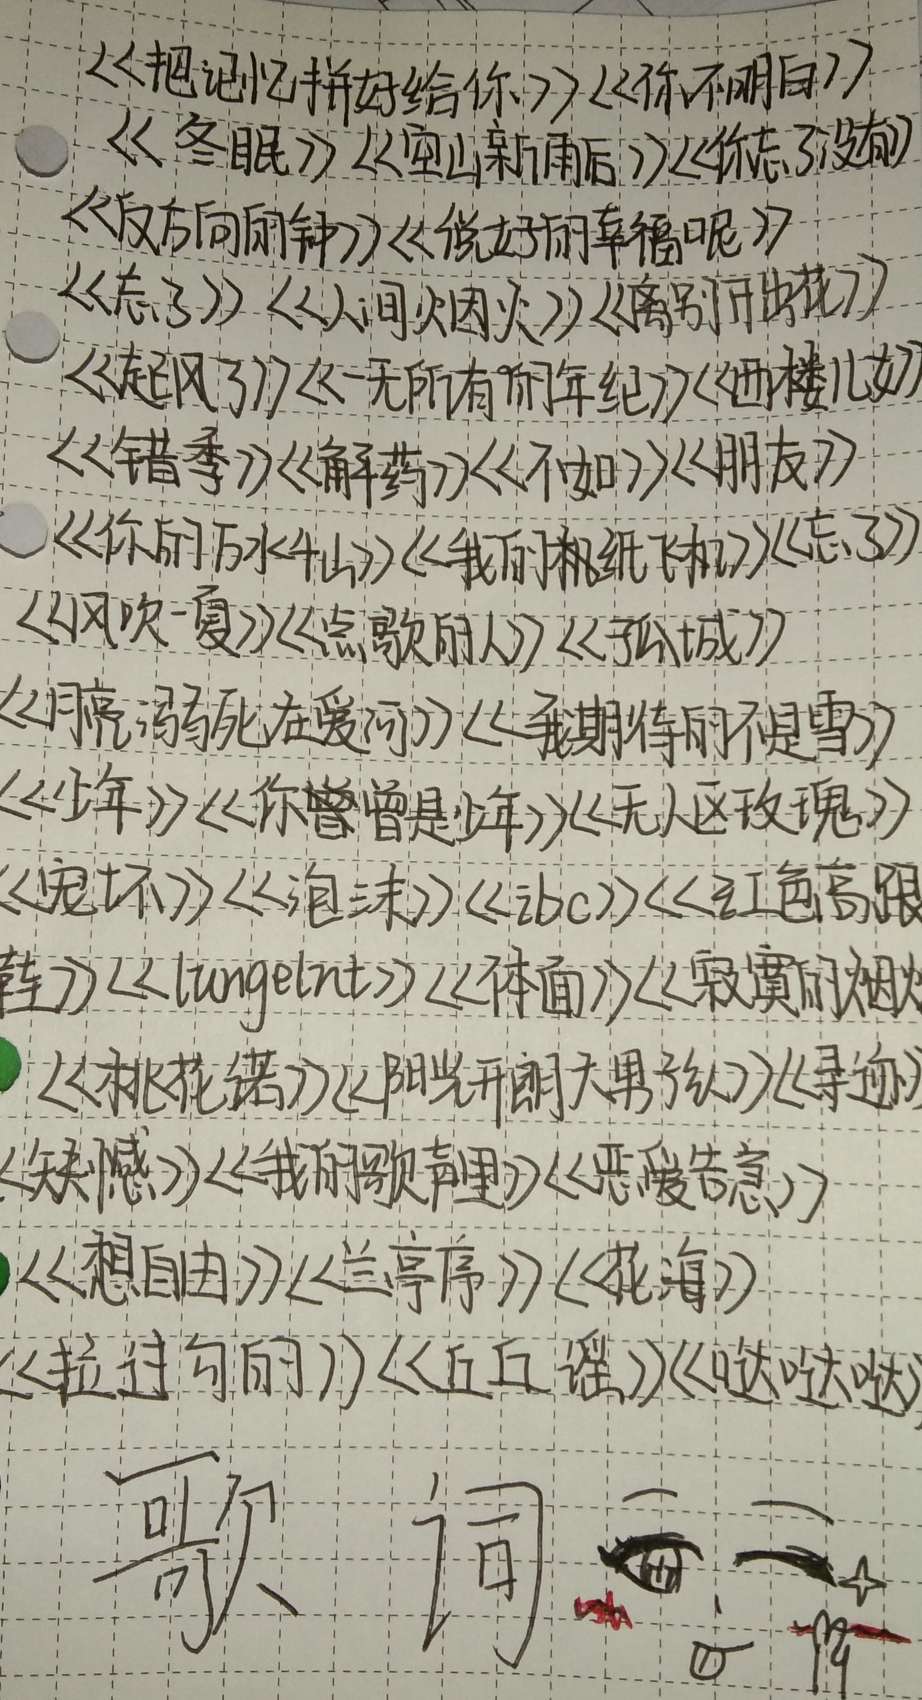 <<把记忆拼好给你>><<你不明白>>
<<冬眠>><<空山新雨后>><<你忘了没有>>
<<反方向的钟>><<说好的幸福呢>>
<<忘了>><<人间烟火>><<离别开出花>>
<<起风了>><<一无所有的年纪>><<西楼儿女>>
<<错季>><<解药>><<不如>><<朋友>>
<<你的万水千山>><<我的纸飞机>><<忘了>>
<<风吹一夏>><<点歌的人>><<孤城>>
<<月亮溺死在爱河>><<我期待的不是雪>>
<<少年>><<你曾是少年>><<无人区玫瑰>>
<<宠坏>><<泡沫>><<ibc>><<红色高跟
鞋>><<lungelnt>><<体面>><<寂寞的烟火
<<桃花诺>><<阳光开朗大男孩>><<寻迹>>
<<缺憾>><<我的歌声里>><<恋爱告急>>
<<想自由>><<兰亭序>><<花海>>
<<拉过勾的>><<丘丘谣>><<哒哒哒>>
歌词